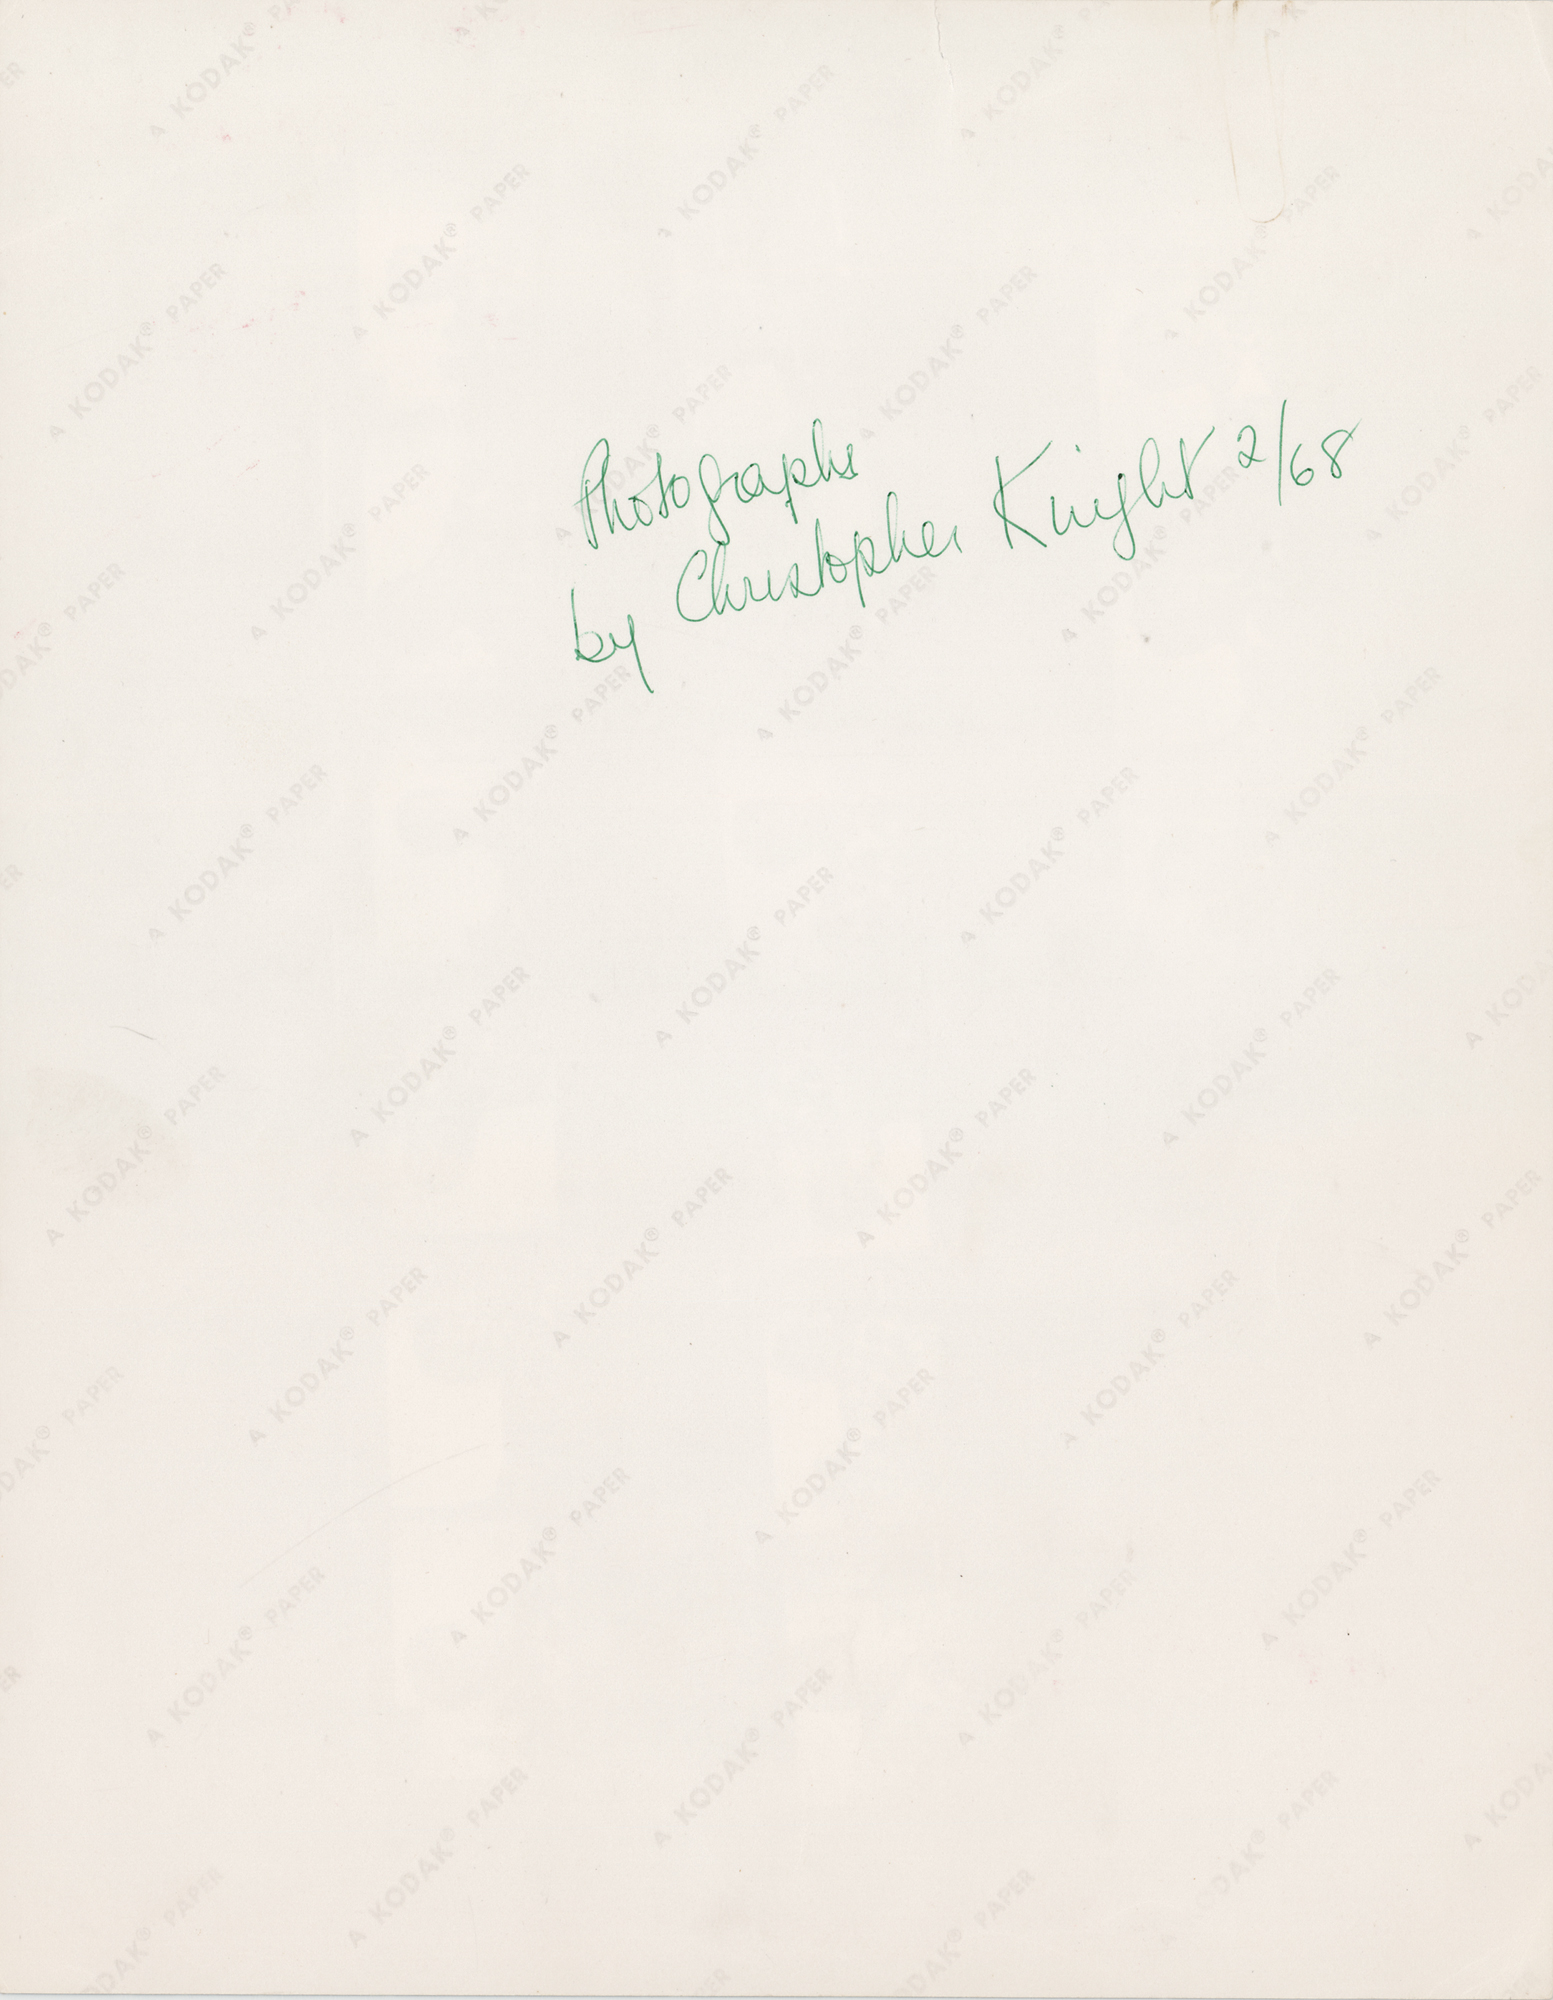 Photographs
by Christopher Knight 2/68
A KODAK® PAPER